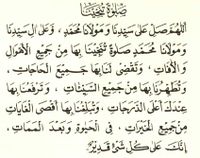 صَلٰوةُ تُنْجِيْنَا
اَللّٰهُمَّ صَلِّ عَلٰى سَيِّدِنَا وَمَوْلَانَا مُحَمَّدٍ، وَعَلٰى اٰلِ سَيِّدِنَا
وَمَوْلَانَا مُحَمَّدٍ صَلٰوةً تُنْجِيْنَا بِهَا مِنْ جَمِيْعِ الْاَهْوَالِ
وَالْاٰفَاتِ، وَتَقْضِىْ لَنَا بِهَا جَمِيْعَ الْحَاجَاتِ،
وَتُطَهِّرُنَا بِهَا مِنْ جَمِيْعِ السَّيِّئَاتِ، وَتَرْفَعُنَا بِهَا
عِنْدَكَ اَعْلَى الدَّرَجَاتِ، وَتُبَلِّغُنَا بِهَا اَقْصَى الْغَايَاتِ
مِنْ جَمِيْعِ الْخَيْرَاتِ، فِى الْحَيٰوةِ وَبَعْدَ الْمَمَاتِ،
اِنَّكَ عَلٰى كُلِّ شَىْءٍ قَدِيْرٌ